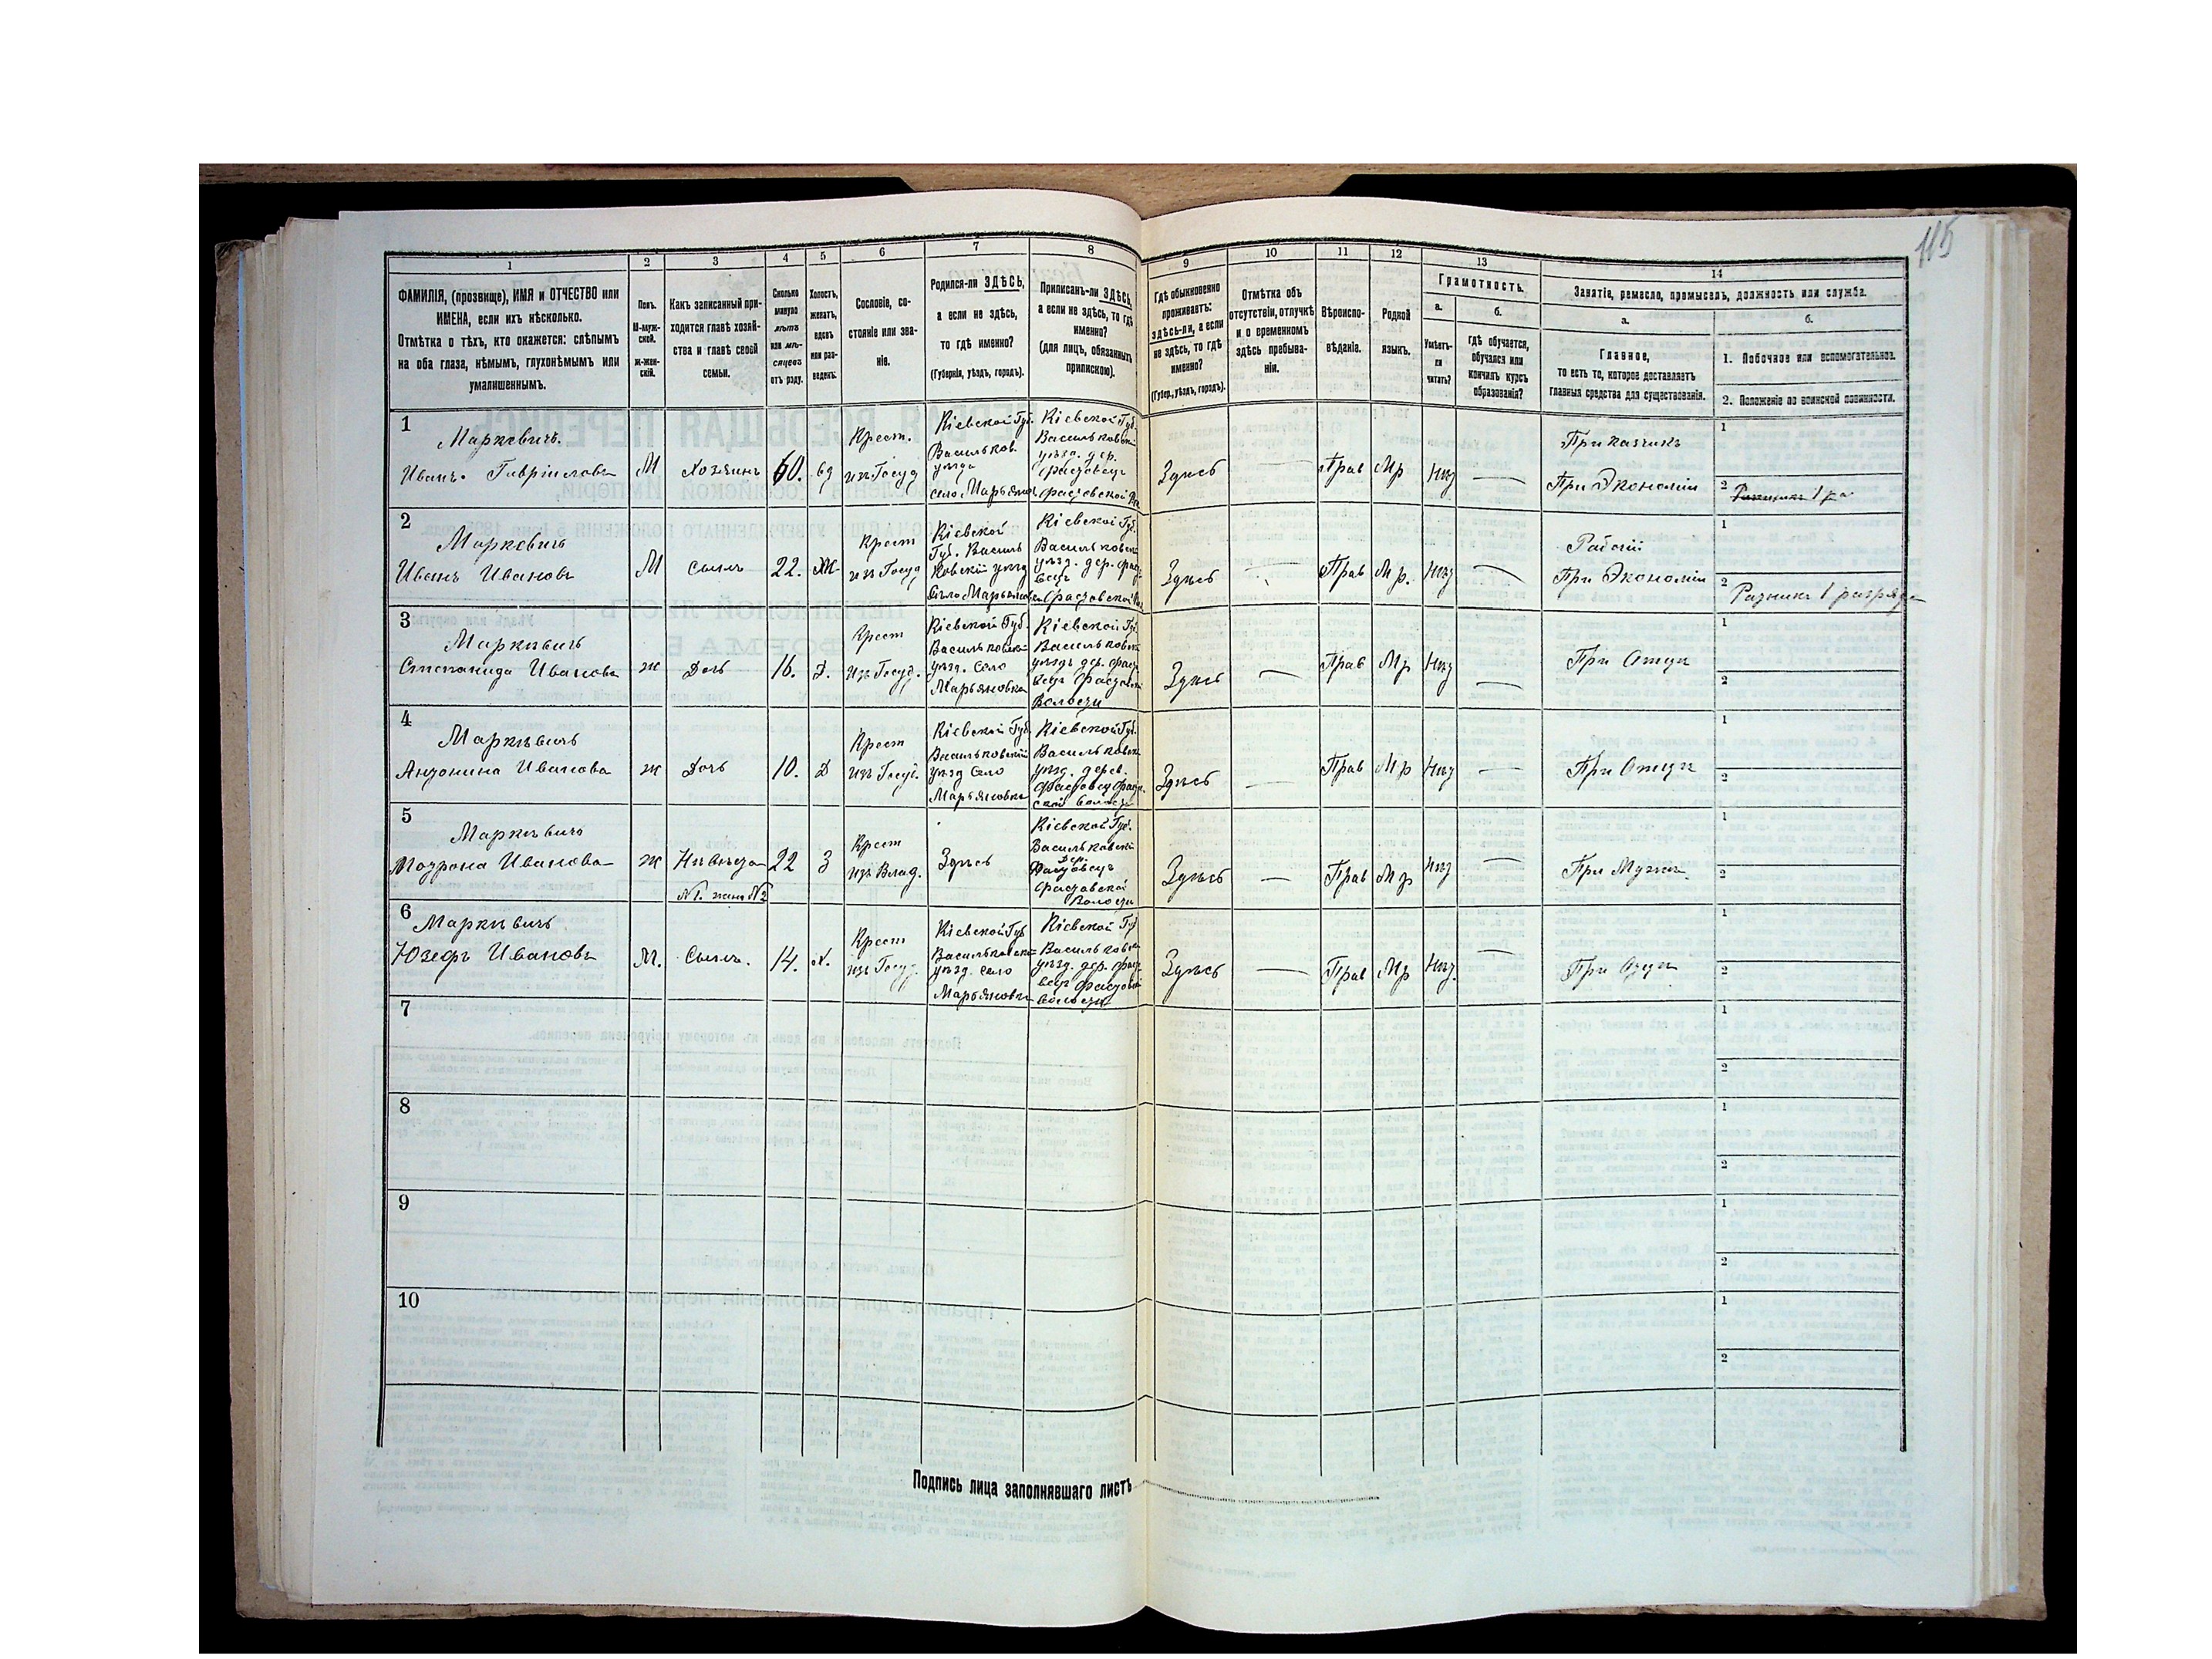 115
1
2
3
4
5
6
7
8
9
10
11
12
13
14
ФАМИЛІЯ, (прозвище), ИМЯ и ОТЧЕСТВО или
ИМЕНА, если ихъ нѣсколько.
Отмѣтка о тѣхъ, кто окажется: слѣпымъ
на оба глаза, нѣмымъ, глухонѣмымъ или
умалишеннымъ.
Полъ.
М-муж-
ской.
Ж-жен-
скій.
Какъ записанный при-
ходится главѣ хозяй-
ства и главѣ своей
семьи.
Сколько
минуло
лѣтъ
или мѣ-
сяцевъ
отъ роду.
Холостъ,
женатъ,
вдовъ
или раз-
веденъ.
Сословіе, со-
стояніе или зва-
ніе.
Родился-ли ЗДѢСЬ,
а если не здѣсь,
то гдѣ именно?
(Губернія, уѣздъ, городъ).
Приписанъ-ли ЗДѢСЬ,
а если не здѣсь, то гдѣ
именно?
(для лицъ, обязанныхъ
припискою).
Гдѣ обыкновенно
проживаетъ:
здѣсь-ли, а если
не здѣсь, то гдѣ
именно?
(Губер., уѣздъ, городъ).
Отмѣтка объ
отсутствіи, отлучкѣ
и о временномъ
здѣсь пребыва-
ніи.
Вѣроиспо-
вѣданіе.
Родной
языкъ.
Грамотность.
а.
Умѣетъ-
ли
читать?
б.
гдѣ обучается,
обучался или
кончилъ курсъ
образованія?
Занятіе, ремесло, промыселъ, должность или служба.
а.
Главное,
то есть то, которое доставляетъ
главныя средства для существованія.
б.
1. Побочное или вспомогательное.
2. Положеніе по воинской повинности.
1
Маркевичъ.
Иванъ Гаврiиловъ
М
Хозяинъ
60.
вд
Крест.
изъ Госуд
Кіевской Губ.
Васильков.
уѣзда
село Марьяновк
Кіевской Губ.
Васильковскій
уѣзд. дер.
Фастовецъ
Фастовской Вол
Здѣсь
Прав
Мр
Нѣт
Приказчикъ
При Экономіи
1
2
2
Маркевичъ
Иванъ Ивановъ
М
Сынъ
22.
Ж
Крест
изъ Госуд
Кіевской
Губ. Василь
ковскій уѣзд
село Марьяновк
Кіевской Губ.
Васильковск
уѣзд. дер. Фасто
вецъ
Фастовской Вол
Здѣсь
Прав
Мр.
Нѣт
Рабочій
При Экономіи
1
2 Ратникъ 1 разряда
3
Маркевичъ
Степанида Иванова
ж
Дочь
16.
Д.
Крест
изъ Госуд.
Кіевской Губ.
Васильковск
уѣзд. Село
Марьяновка
Кіевской Губ.
Васильковск
уѣздъ дер. Фасто
вецъ Фастовск
Волости
Здѣсь
Прав
Мр
Нѣт
При Отцѣ
1
2
4
Маркевичъ
Антонина Иванова
ж
Дочь
10.
Д
Крест
изъ Госуд.
Кіевской Губ.
Васильковскій
уѣзд Село
Марьяновка
Кіевской Губ.
Васильковск
уѣзд. дерев.
Фастовец Фастов
ской Волости
Здѣсь
Прав
Мр
Нѣт
При Отцѣ
1
2
5
Маркевичъ
Мотрона Иванова
ж
Невѣста
№1. жена №2
22
З
Крест
изъ Влад.
Здѣсь
Кіевской Губ.
Васильковскій
дер.
Фастовецъ
Фастовской
Волости
Здѣсь
Прав
Мр
Нѣт
При Мужѣ
1
2
6
Маркевичъ
Юзефъ Ивановъ
М.
Сынъ.
14.
Х.
Крест
изъ Госуд.
Кіевской Губ
Васильковск
уѣзд. Село
Марьяновка
Кіевской Губ
Васильковск
уѣзд. дер. Фасто
вецъ Фастовской
Волости
Здѣсь
Прав
Мр
Нѣт.
При Отцѣ
1
2
7
1
2
8
1
2
9
1
2
10
1
2
Подпись лица заполнявшаго листъ